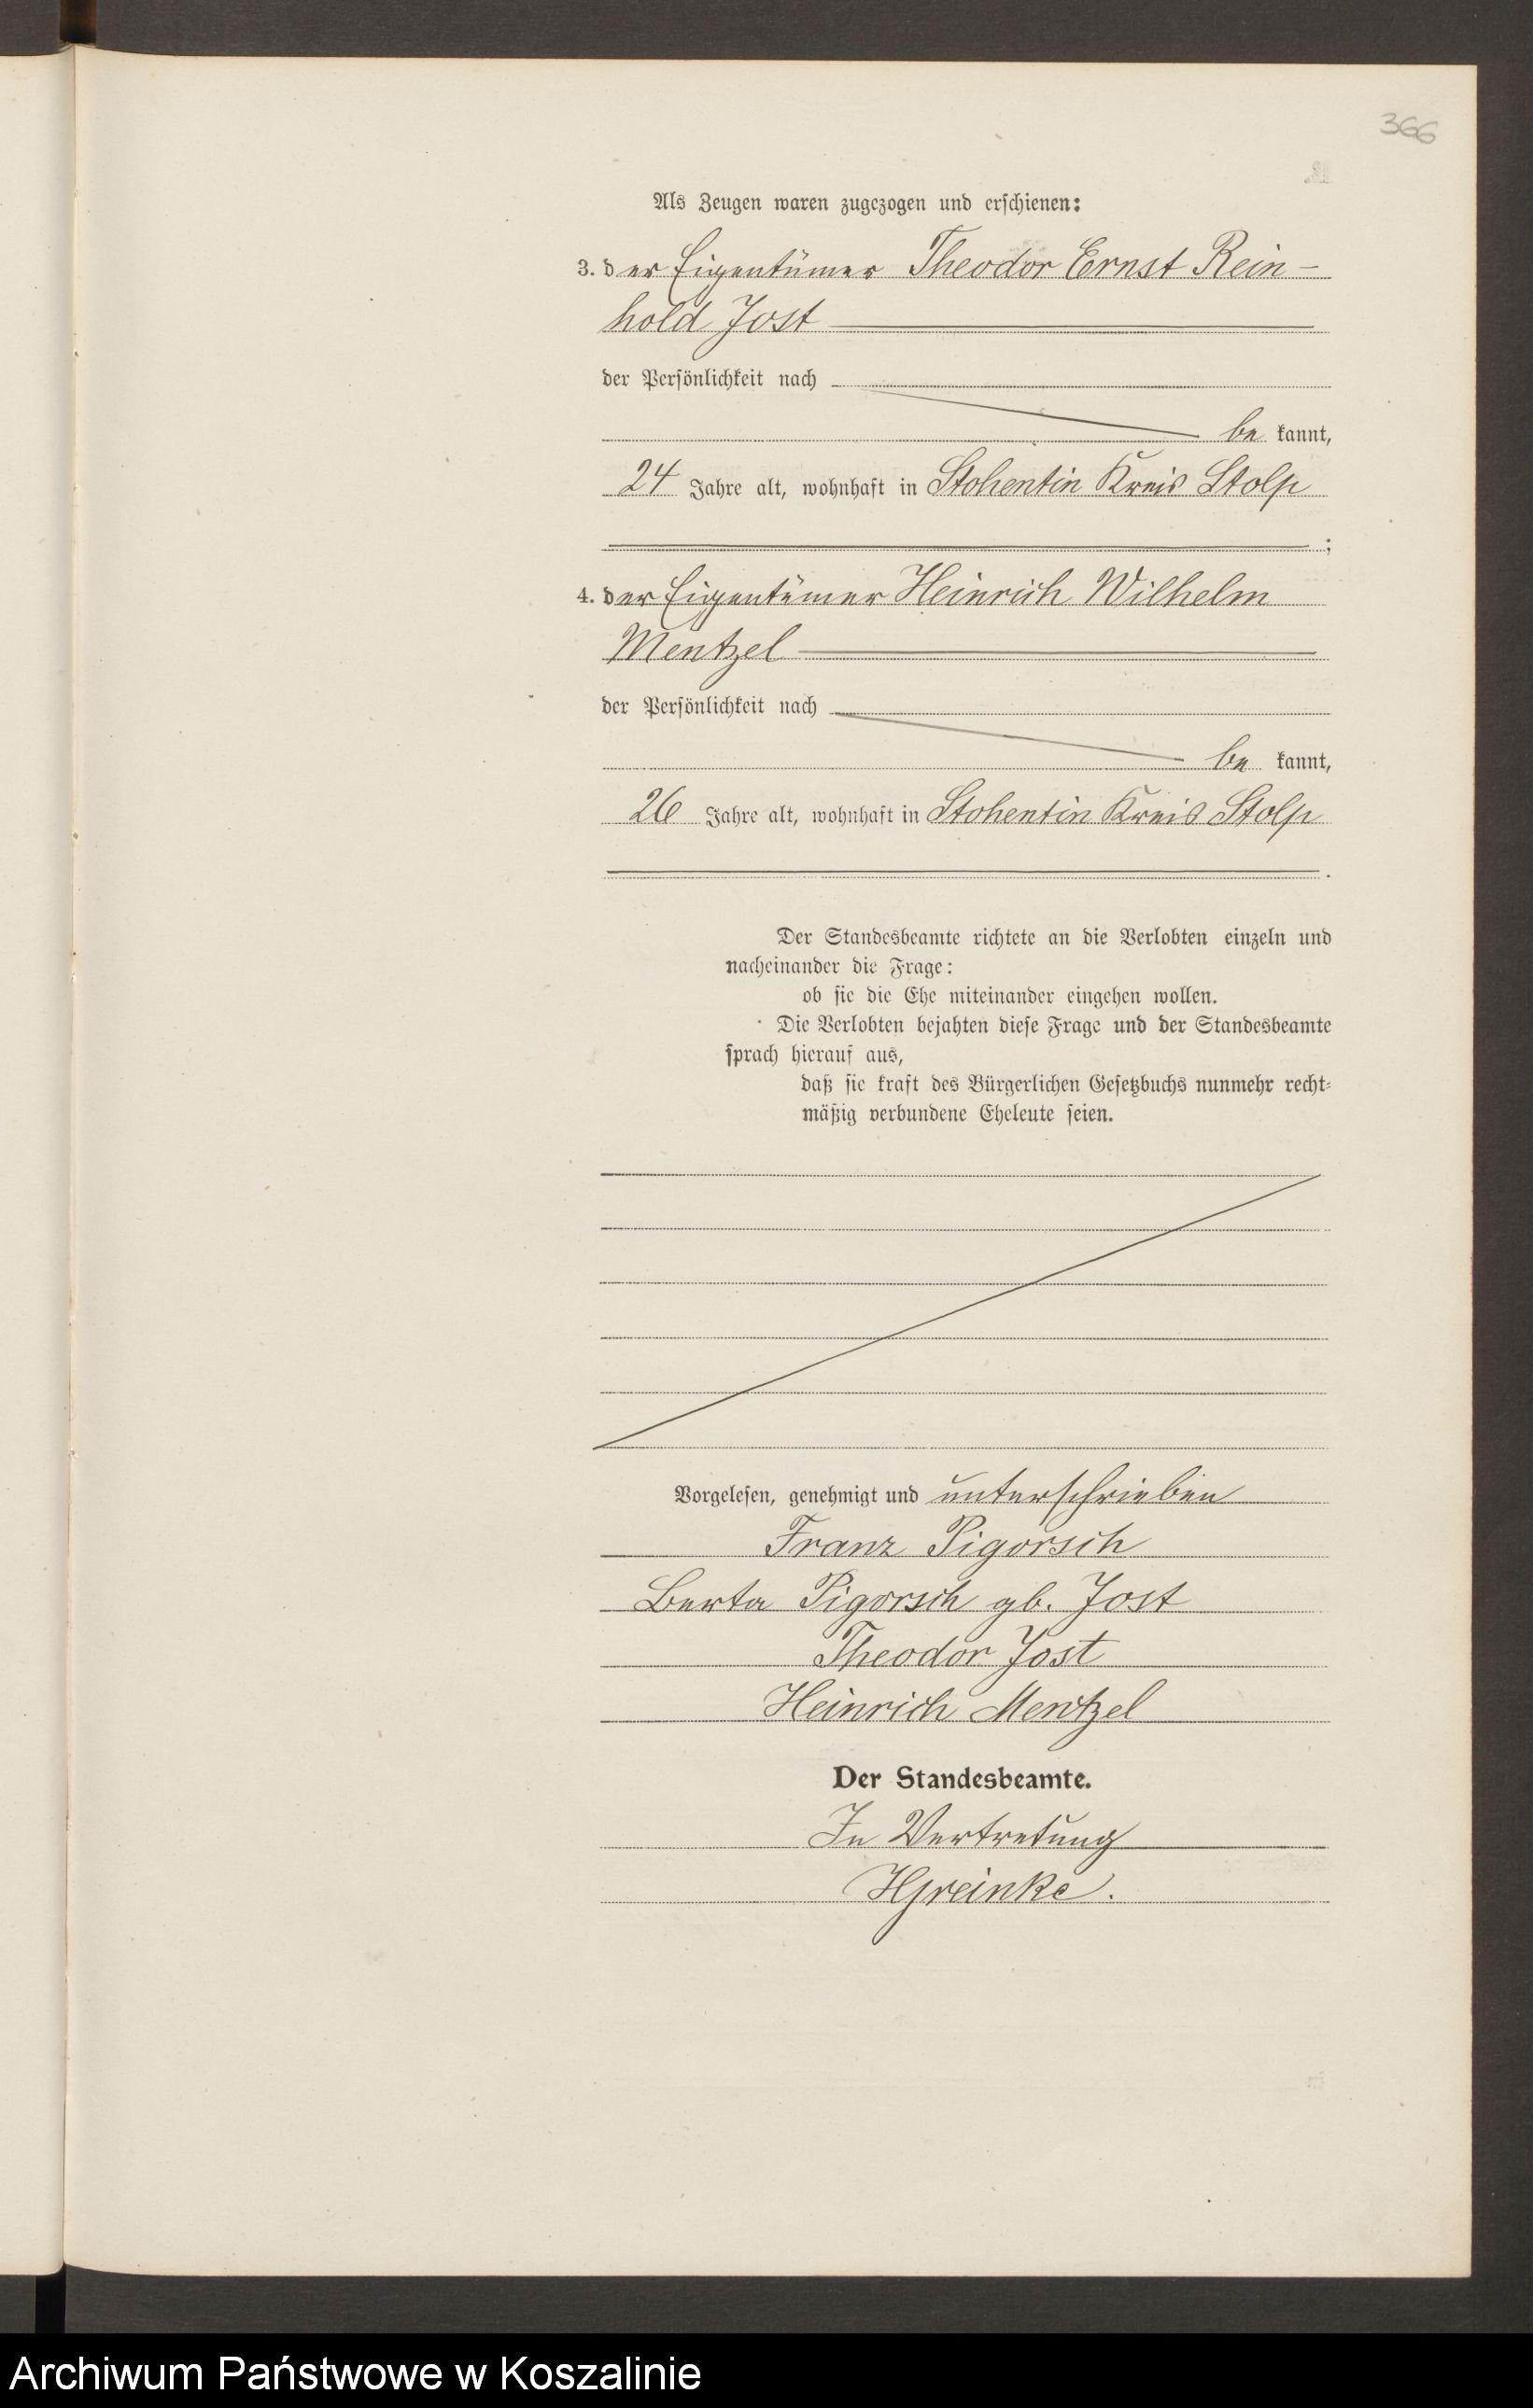 366
Als Zeugen waren zugezogen und erschienen:
3. der Eigentümer Theodor Ernst Rein-
hold Jost
der Persönlichkeit nach
be kannt,
24 Jahre alt, wohnhaft in Stohentin Kreis Stolp
;
4. der Eigentümer Heinrich Wilhelm
Mentzel
der Persönlichkeit nach
be kannt,
26 Jahre alt, wohnhaft in Stohentin Kreis Stolp
.
Der Standesbeamte richtete an die Verlobten einzeln und
nacheinander die Frage:
ob sie die Ehe miteinander eingehen wollen.
Die Verlobten bejahten diese Frage und der Standesbeamte
sprach hierauf aus,
daß sie kraft des Bürgerlichen Gesetzbuchs nunmehr recht-
mäßig verbundene Eheleute seien.
Vorgelesen, genehmigt und unterschrieben
Franz Pigorsch
Berta Pigorsch gb. Jost
Theodor Jost
Heinrich Mentzel
Der Standesbeamte.
In Vertretung
Archiwum Państwowe w Koszalinie